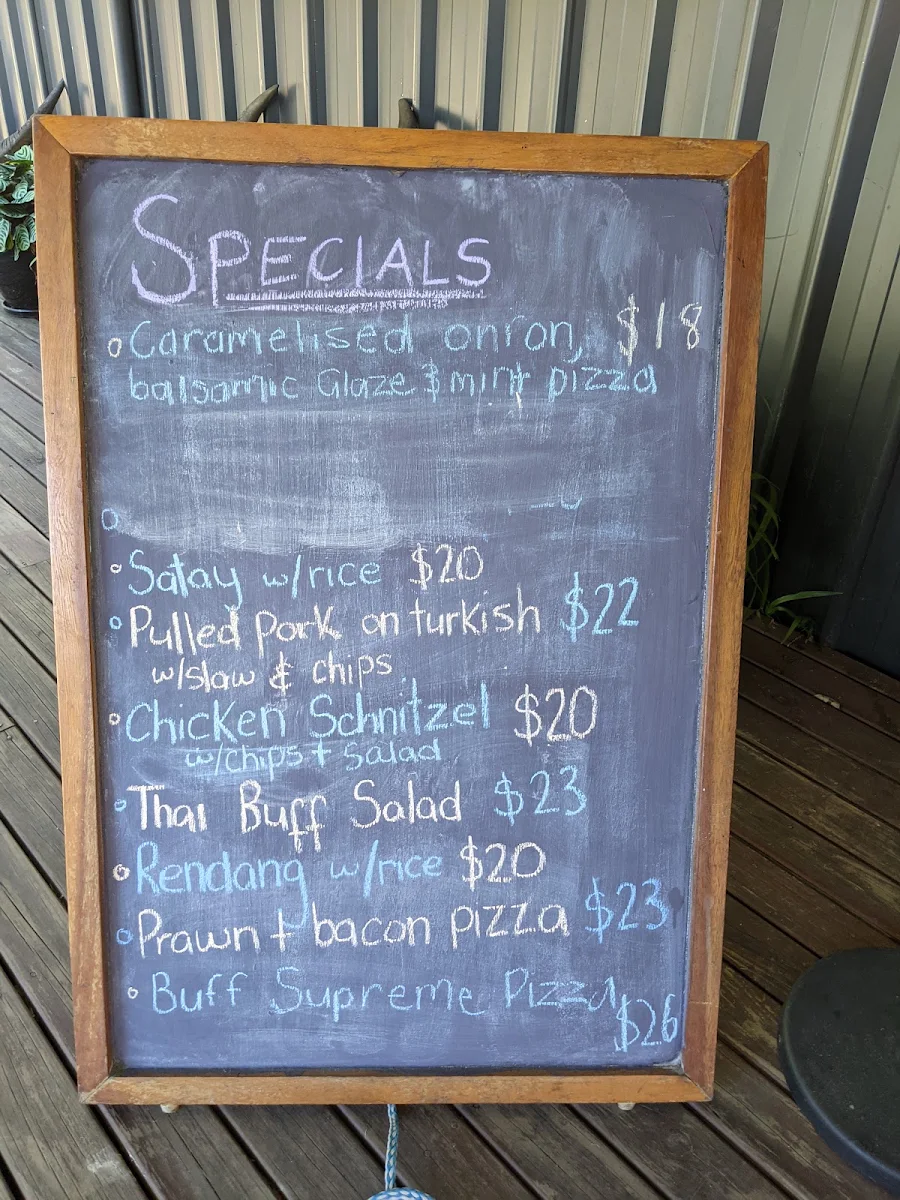 SPECIALS
Caramelised onion, $18
balsamic Glaze & mint pizza
Satay w/rice $20
Pulled pork on turkish $22
w/slaw & chips
Chicken Schnitzel $20
w/chips + salad
Thai Buff Salad $23
Rendang w/rice $20
Prawn + bacon pizza $23
Buff Supreme Pizza
$26